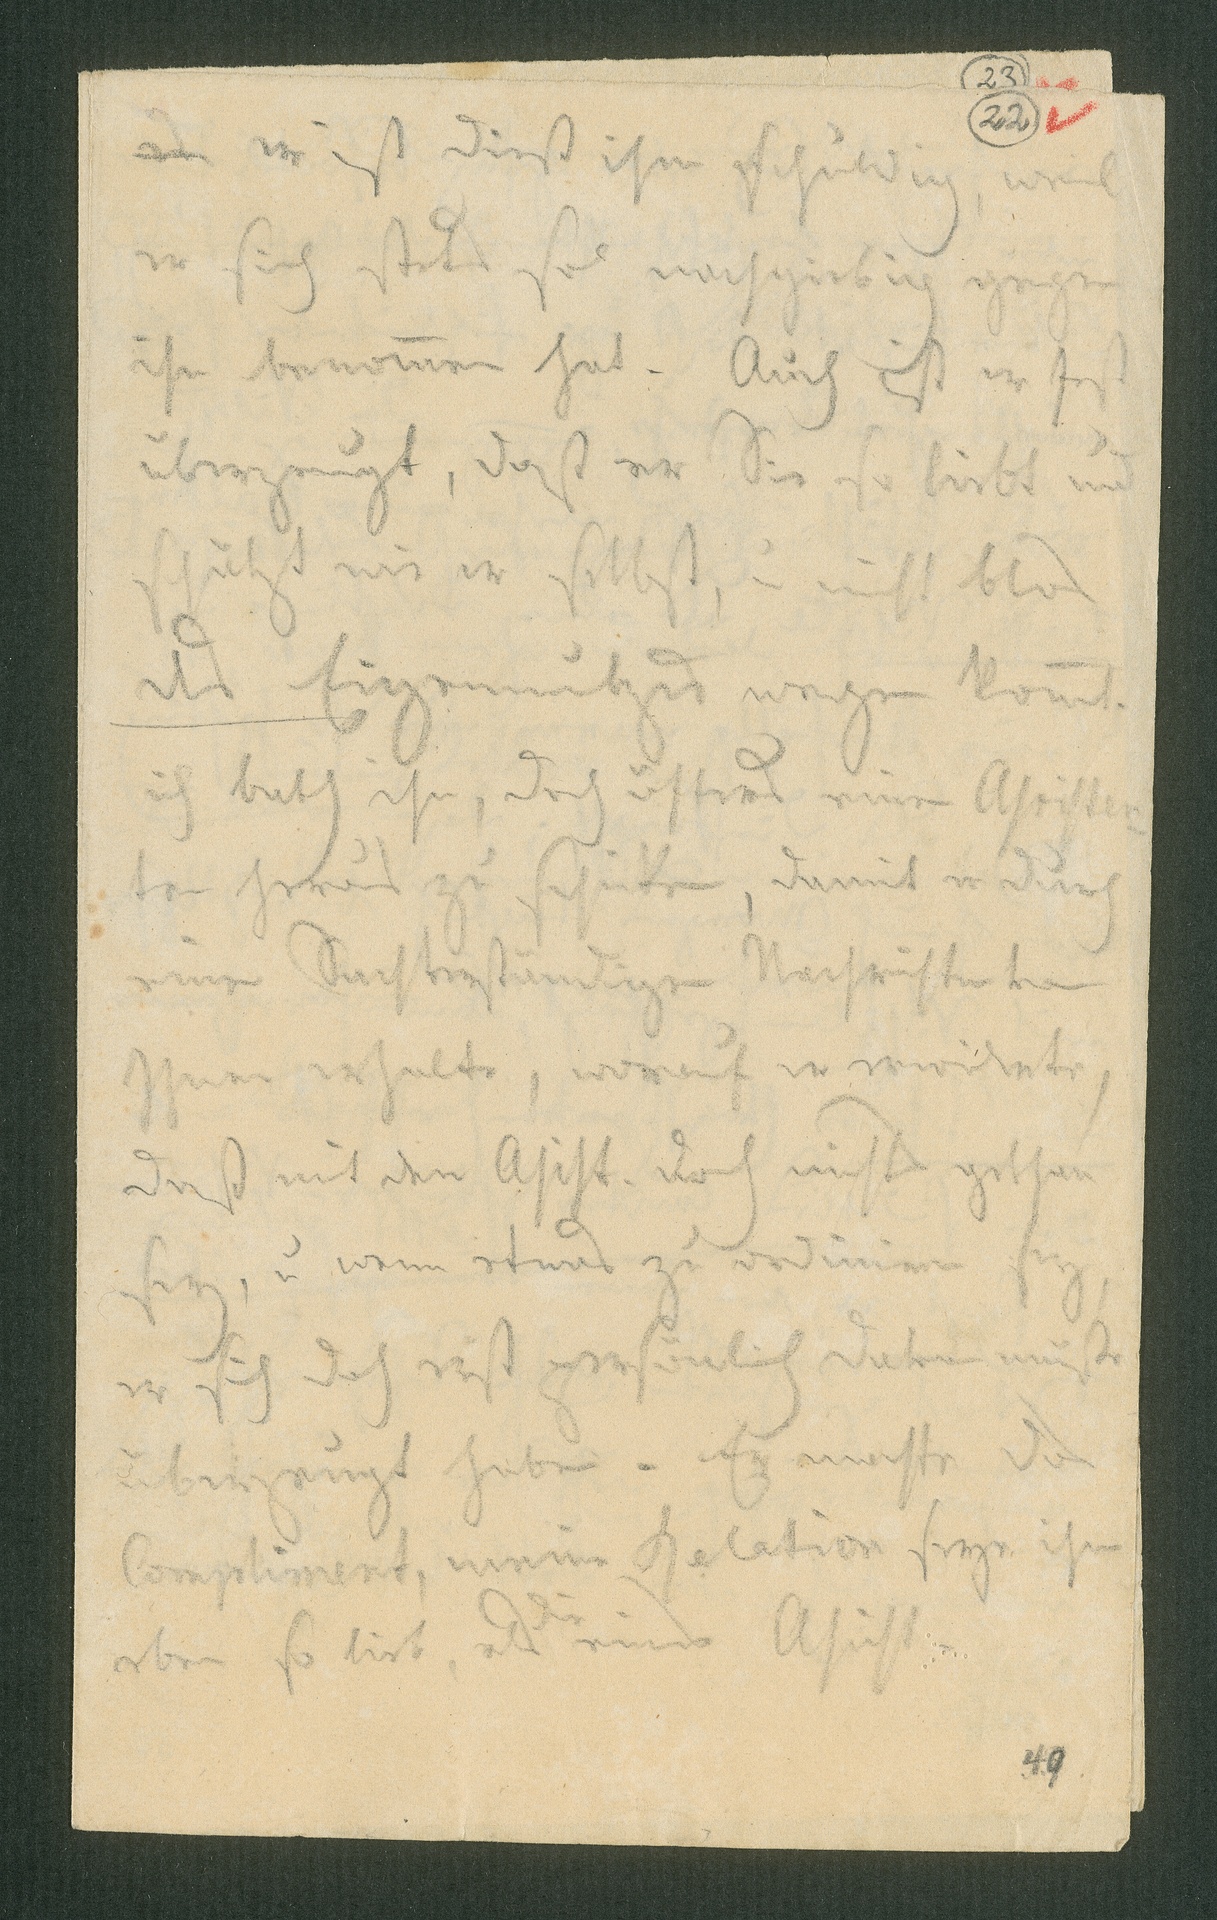 23
22
er ist dieß ihm schuldig, weil
er sich stets so nachgiebig gegen
ihn benom̅en hat. Auch ist er fest
überzeugt, daß er Sie so liebt und
schätzt wie er selbst, u nicht blos
des Eigennutzes wegen kom̅t.
ich bath ihn, doch öfters einen Assisten=
ten heraus zu schicken, damit er durch
einen Sachverständigen Nachrichten von
Ihnen erhalte, worauf er erwiderte,
daß mit den Assist. doch nichts gethan
sey, u wenn etwas zu ordiniren sey,
er sich doch erst persönlich davon müßte
überzeugt haben. Er machte das
Compliment, meine Relation seye ihm
eben so lieb, als die eines Assist.
49